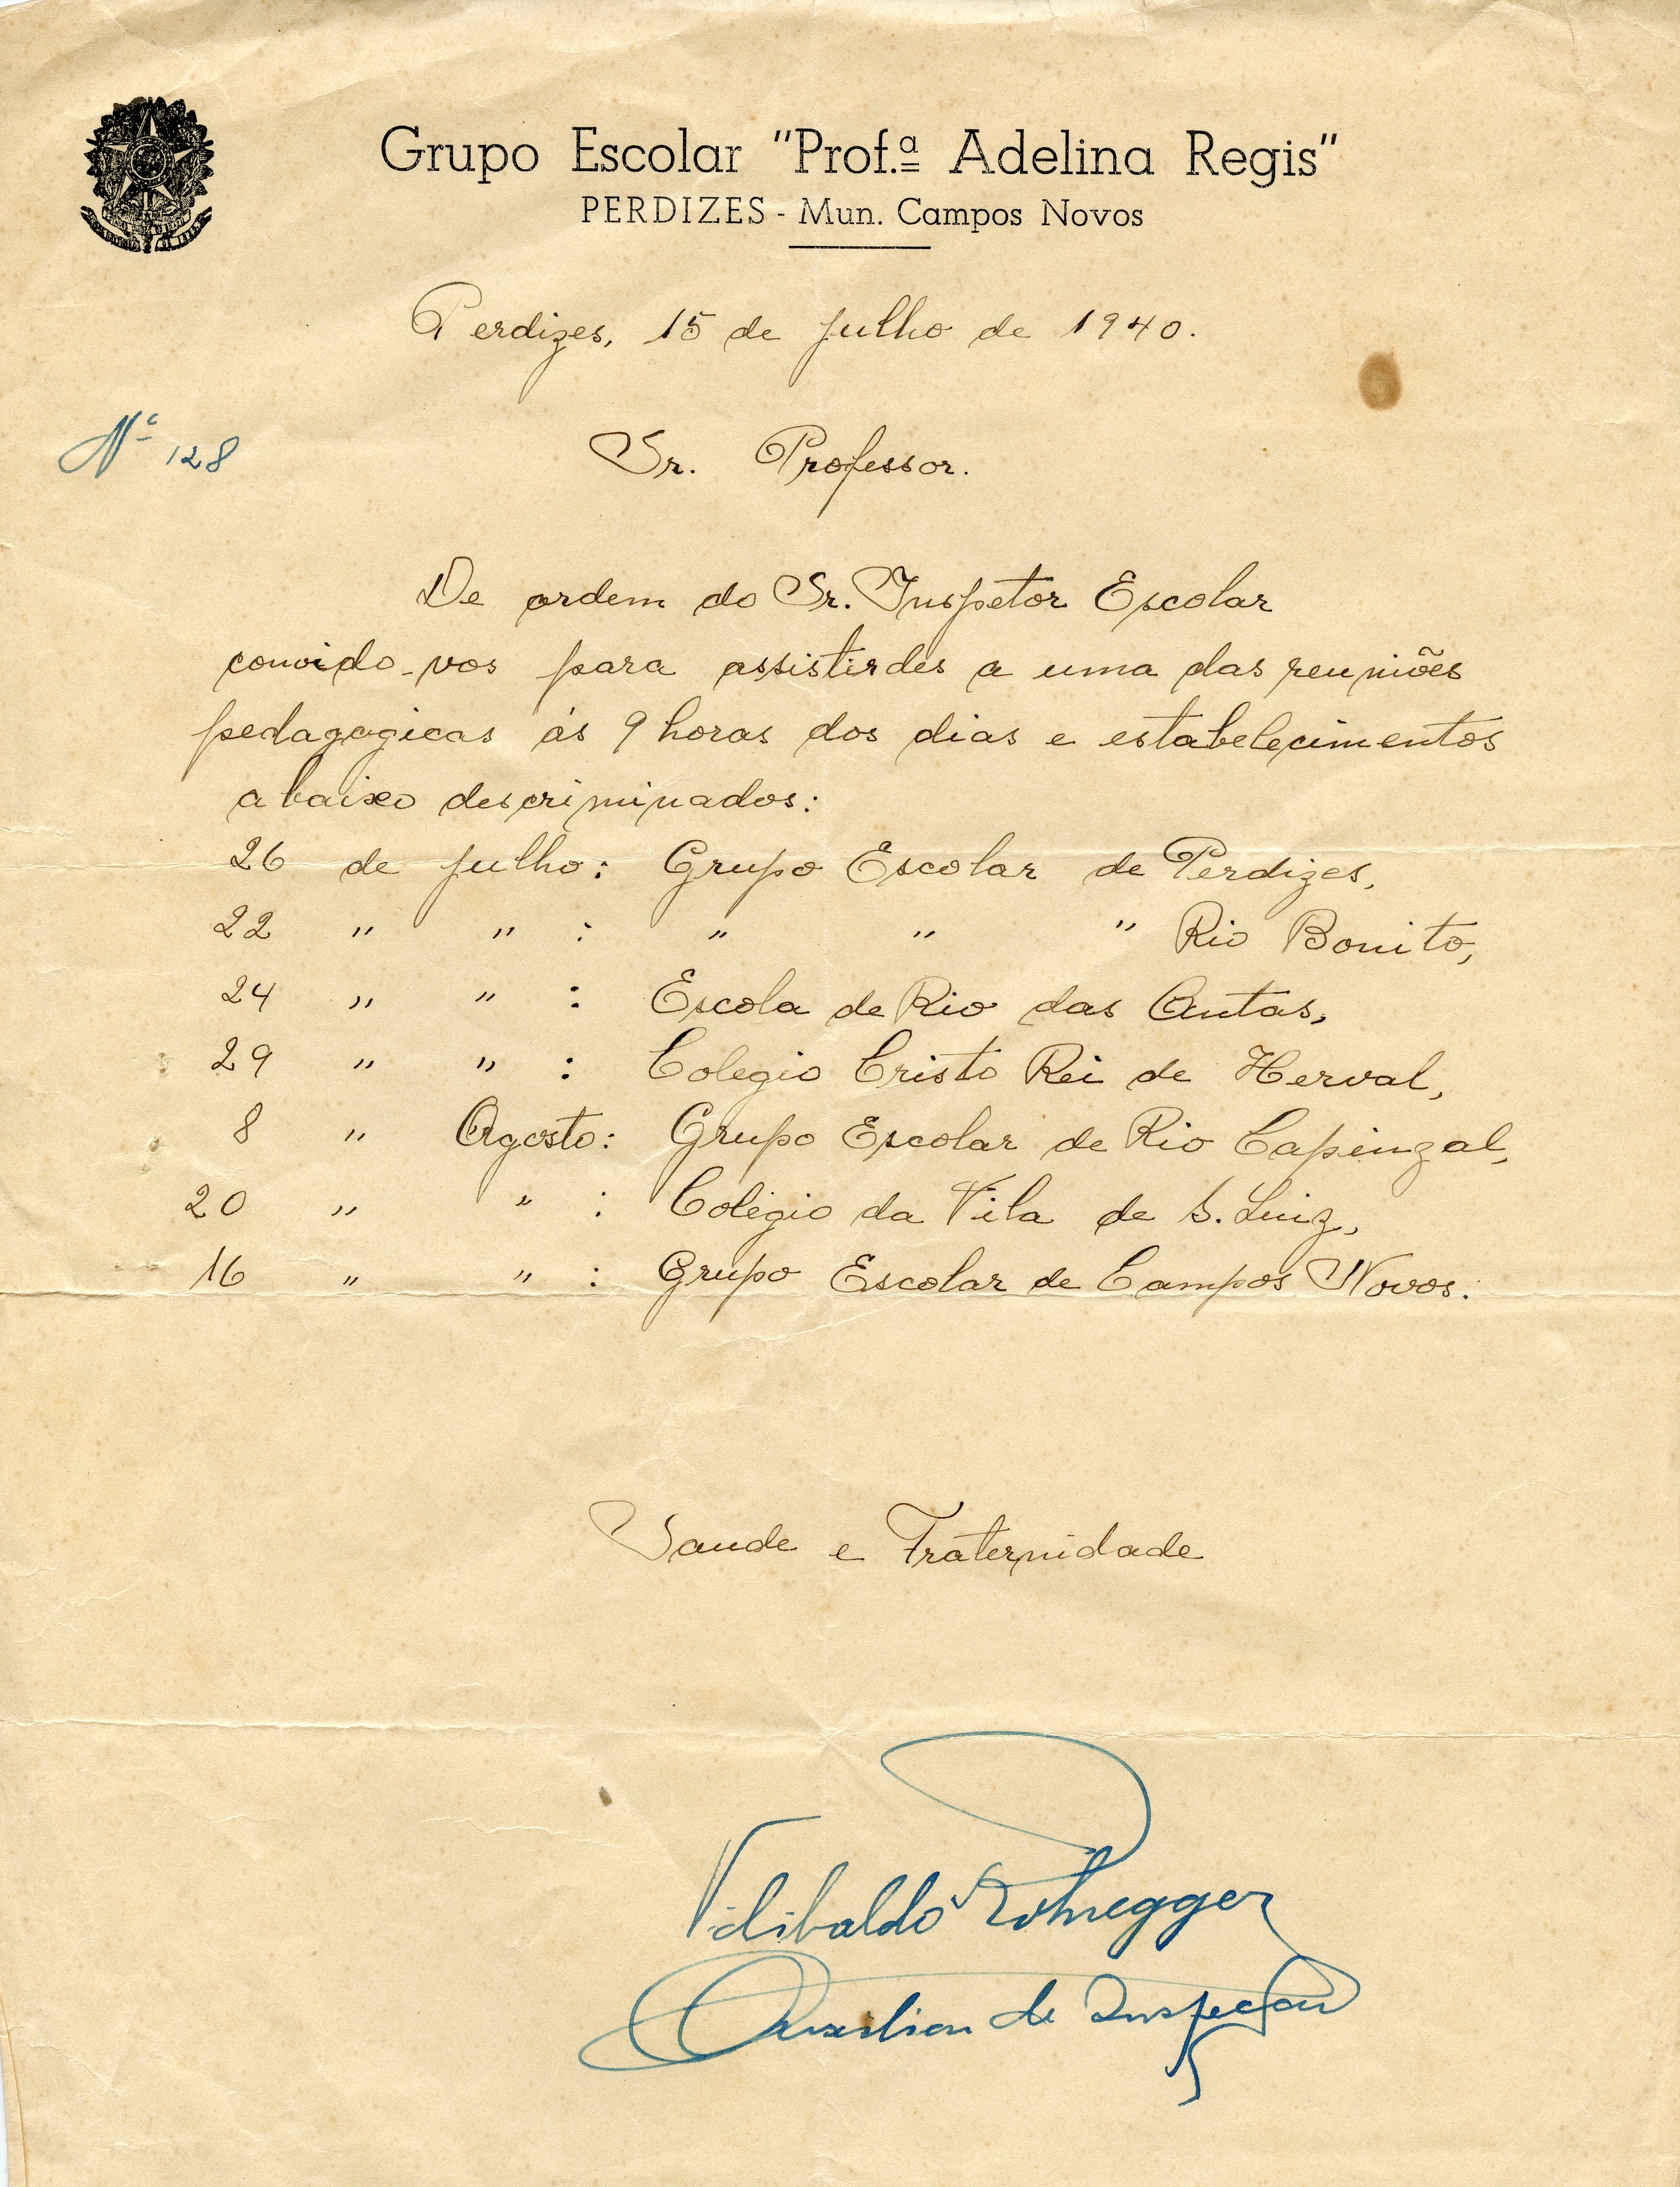 Grupo Escolar "Prof.ª Adelina Regis"
PERDIZES - Mun. Campos Novos
Perdizes, 15 de julho de 1940.
Nº 128
Sr. Professor.
De ordem do Sr. Inspetor Escolar
convido-vos para assistirdes a uma das reuniões
pedagogicas ás 9 horas dos dias e estabelecimentos
abaixo descriminados:
26 de julho: Grupo Escolar de Perdizes,
22 " " : " " " Rio Bonito,
24 " " : Escola de Rio das Antas,
29 " " : Colegio Cristo Rei de Herval,
8 " Agosto: Grupo Escolar de Rio Capinzal,
20 " " : Colégio da Vila de S. Luiz,
16 " " : Grupo Escolar de Campos Novos.
Saude e Fraternidade
Vilibaldo
Auxiliar de Inspeção